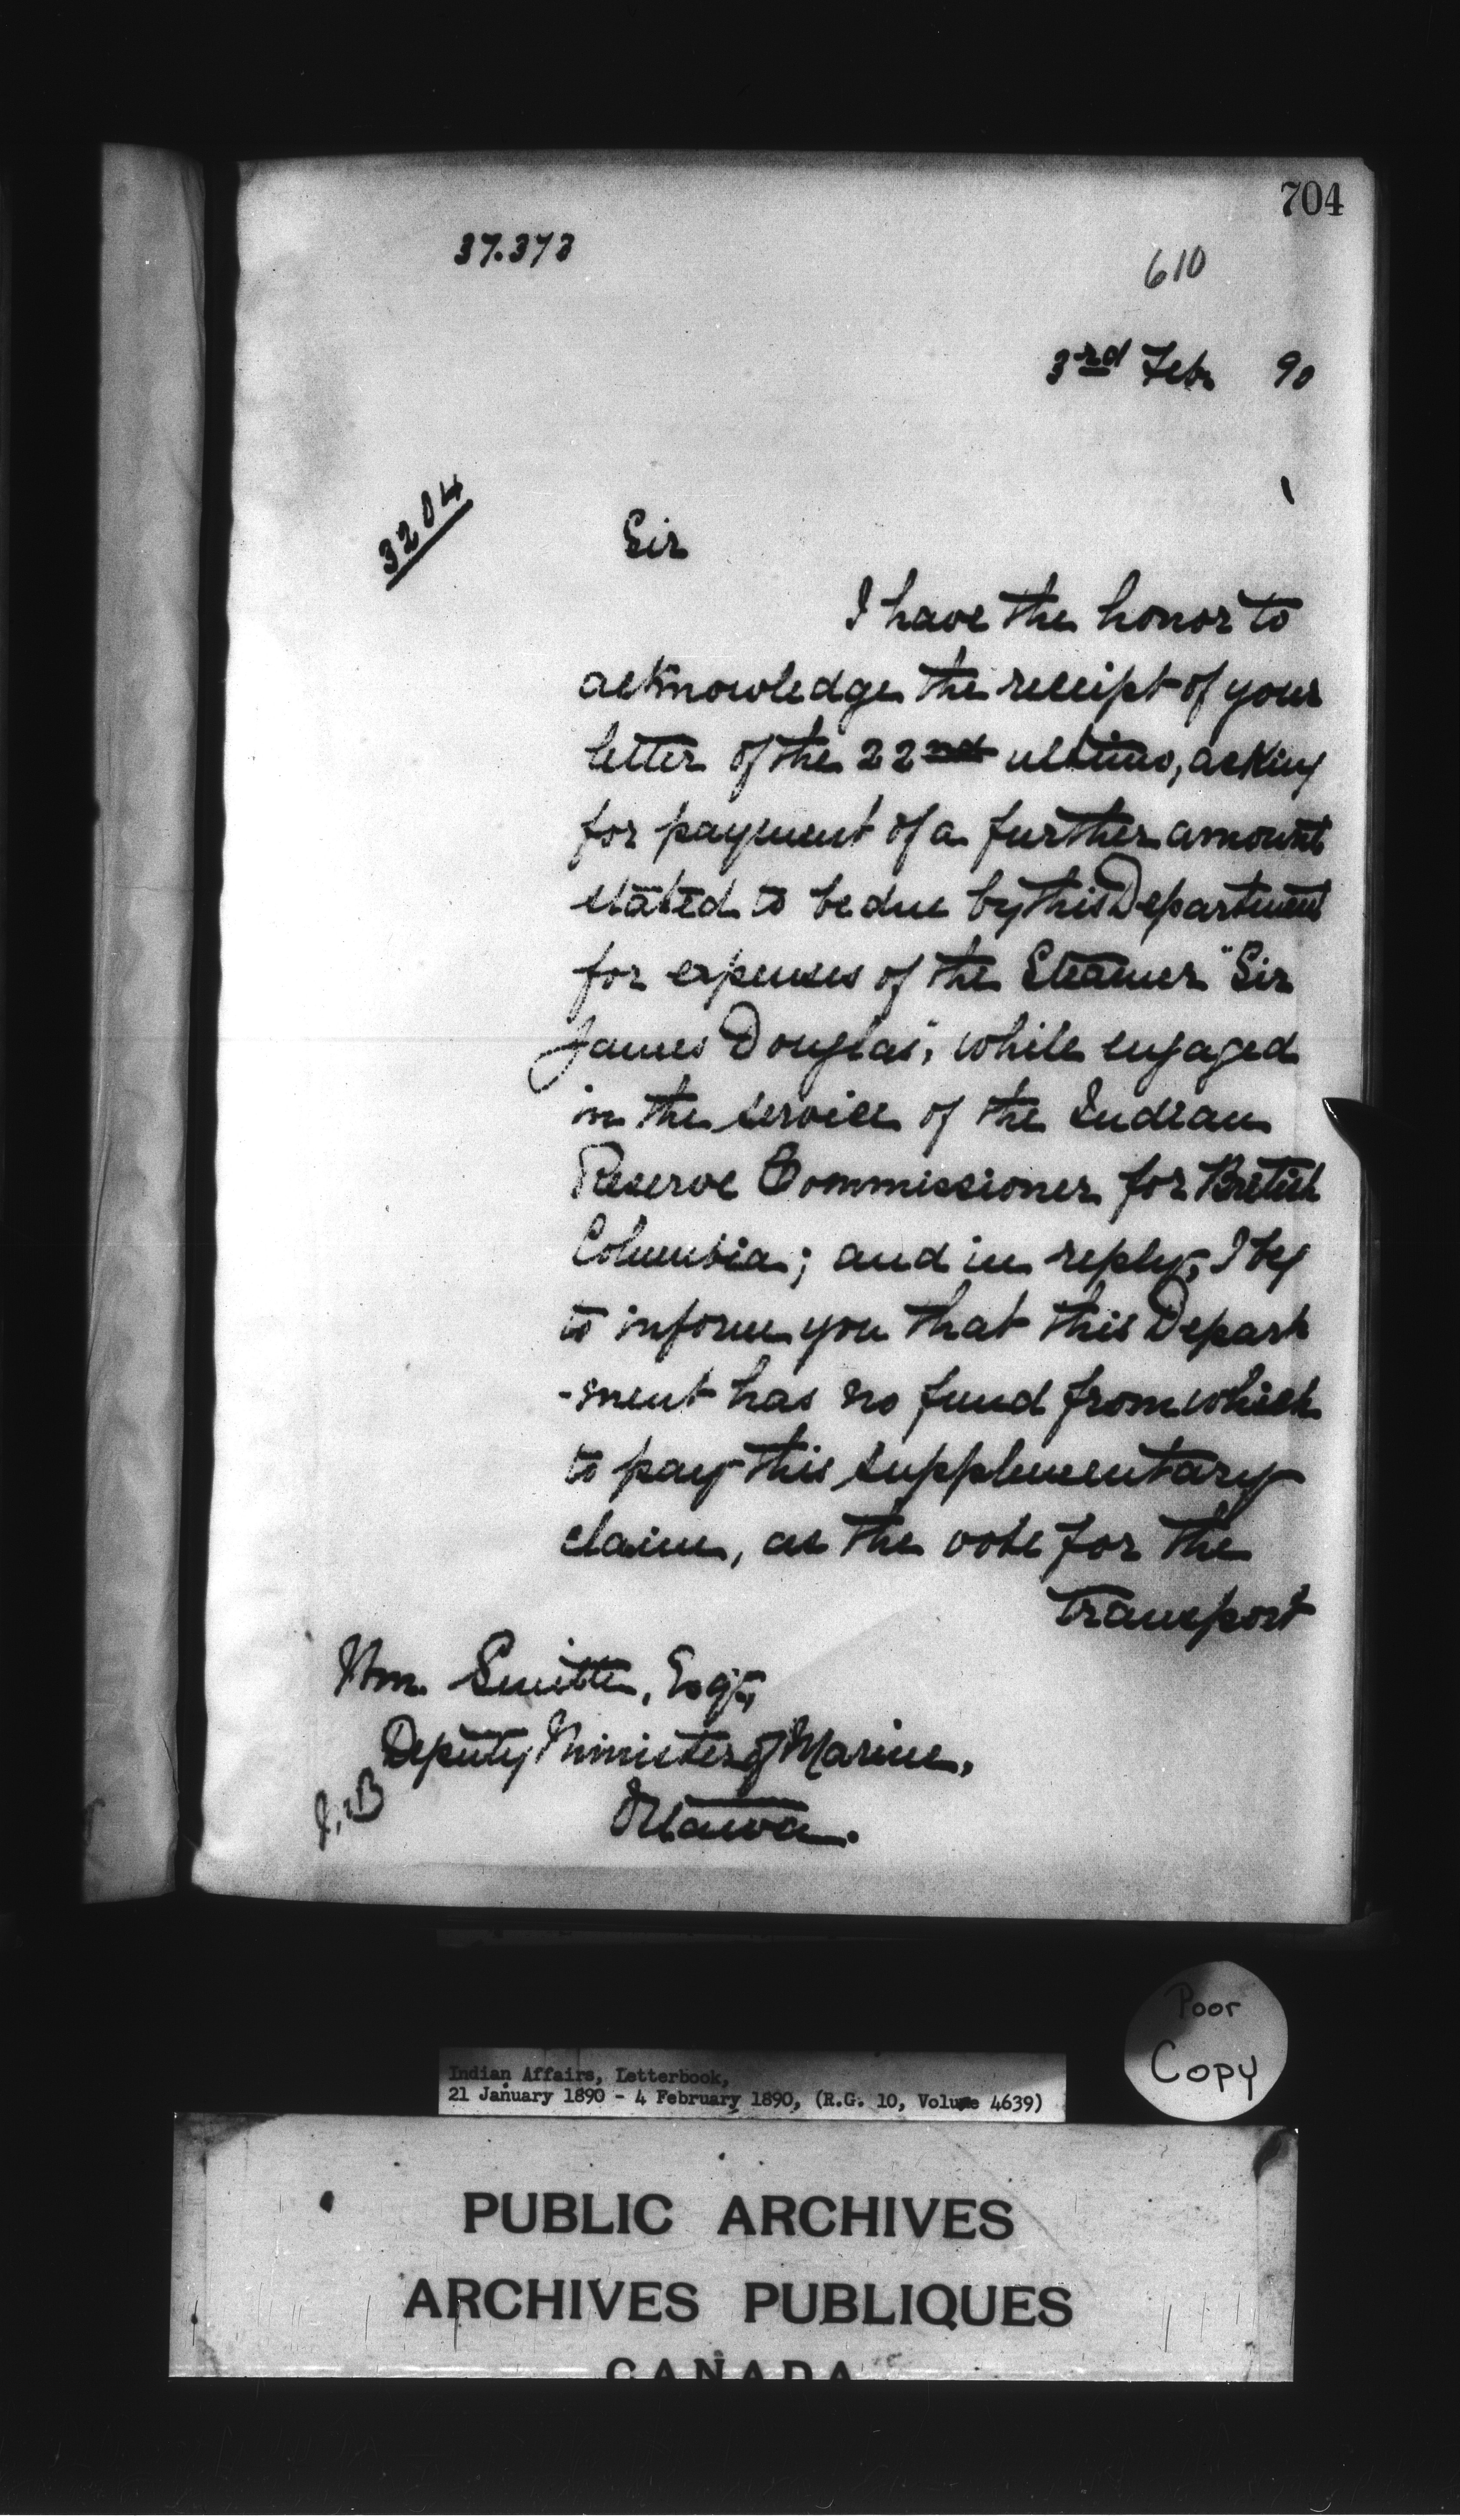 704
37.373
610
3rd Feb 90
3204
Sir
I have the honor to
acknowledge the receipt of your
letter of the 22nd ultimo, asking
for payment of a further amount
stated to be due by this Department
for expenses of the Steamer "Sir
James Douglas", while engaged
in the service of the Indian
Reserve Commissioner for British
Columbia; and in reply, I beg
to inform you that this Depart
-ment has no fund from which
to pay this supplementary
claim, as the vote for the
transport
Wm. Smith, Esqre,
Deputy Minister of Marine,
Ottawa.
Poor
Copy
Indian Affairs, Letterbook,
21 January 1890 - 4 February 1890, (R.G. 10, Volume 4639)
PUBLIC ARCHIVES
ARCHIVES PUBLIQUES
CANADA